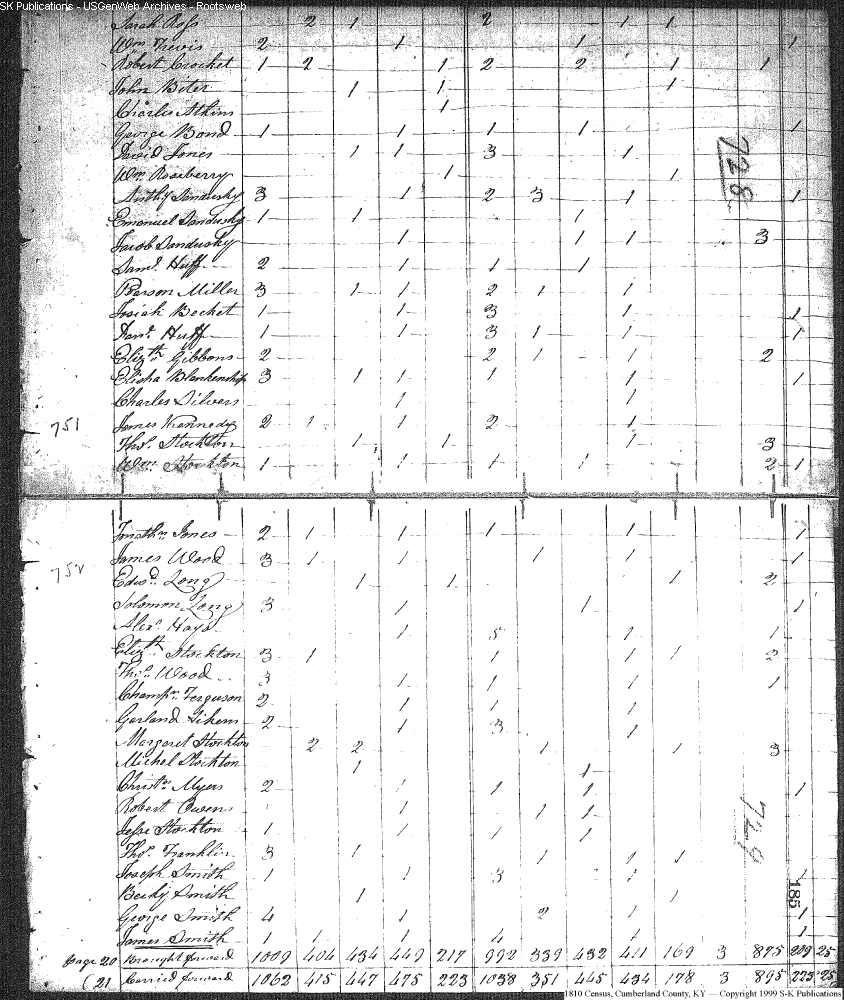 SK Publications - USGenWeb Archives - Rootsweb
Sarah Ross 2 1 2 1 1
Wm Trevis 2 1 1 1
Robert Crocket 1 2 1 2 2 1 1
John Biter 1 1 1
Charles Atkins 1
George Bond 1 1 1 1 1
David Jones 1 1 3 1
728
Wm Roseberry 1 1
Anthy Sandusky 3 1 2 3 1 1
Emanuel Sandusky 1 1 1
Jacob Sandusky 1 1 1 3
Saml. Huff 2 1 1 1
Pearson Miller 3 1 1 2 1 1
Josiah Becket 1 1 3 1 1
Danl. Huff 1 1 3 1 1 1
Elizth Gibbons 2 2 1 1 2
Elisha Blankenship 3 1 1 1 1 1
Charles Silvers 1 1
751 James Kennedy 2 1 1 2 1
Thos. Stockton 1 1 1 3
Wm. Stockton 1 1 1 1 2 1
Jonathn Jones 2 1 1 1 1 1
James Wood 3 1 1 1 1 1
752 Edwd. Long 1 1 1 2
Solomon Long 3 1 1 1
Alexr. Hays 1 5 1 1
Elizth Stockton 3 1 1 1 1 2
Thos. Wood 3 1 1 1 1
Champn Ferguson 2 1 1 1
Garland 2 1 3 1
Margaret Stockton 2 2 1 1 3
Michel Stockton 1 1
Christn. Myers 2 1 1 1 1
Robert Owens 1 1 1
729
Jesse Stockton 1 1 1 1
Thos. Franklin 3 1 1 1 1
Joseph Smith 1 1 3 1
Becky Smith 1 1
185
George Smith 4 1 2 1 1
James Smith 1 1 1 4 1 1
Page 20 Brought forward 1009 404 434 449 217 992 339 432 411 169 3 875 209 25
(21 Carried forward 1062 415 447 475 223 1038 351 445 434 178 3 895 223 25
1810 Census, Cumberland County, KY — Copyright 1999 S-K Publications